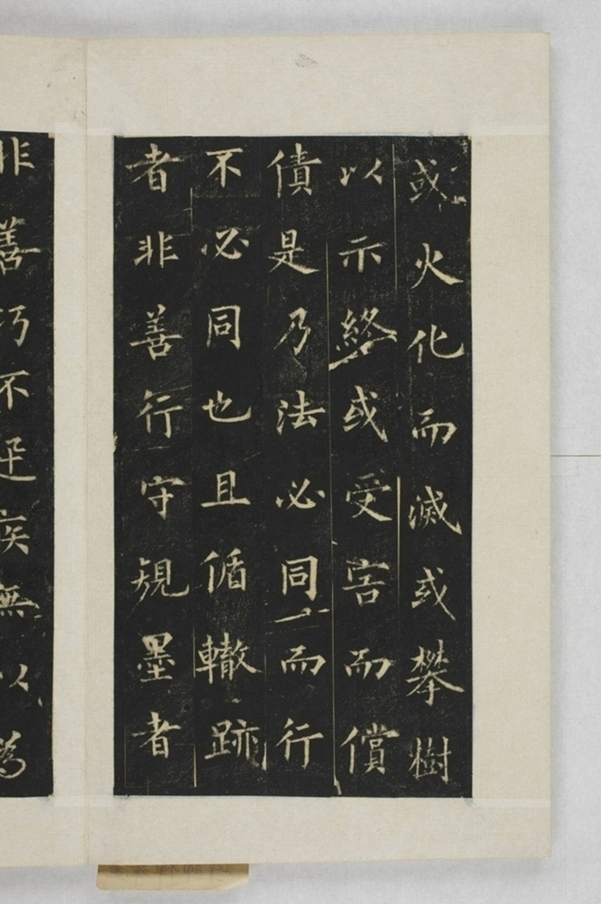 或火化而滅或攀樹
以示終或受害而償
債是乃法必同一而行
不必同也且循轍跡
者非善行守規墨者
非善巧不疾無以為